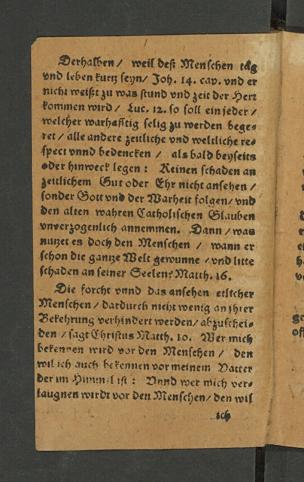 Derhalben / weil deß Menschen täg
vnd leben kurtz seyn / Joh. 14. cap. vnd er
nicht weißt zu was stund vnd zeit der Herr
kommen wird / Luc. 12. so soll ein jeder /
welcher warhafftig selig zu werden bege-
ret / alle andere zeitliche vnd weltliche re-
spect vnnd bedencken / als bald beyseits
oder hinweck legen: Keinen schaden an
zeitlichem Gut oder Ehr nicht ansehen /
sonder Gott vnd der Warheit folgen / vnd
den alten wahren Catholischen Glauben
vnverzogenlich annemmen. Dann / was
nutzet es doch den Menschen / wann er
schon die gantze Welt gewunne / vnd litte
schaden an seiner Seelen? Matth. 16.
Die forcht vnnd das ansehen etlicher
Menschen / dardurch nicht wenig an jhrer
Bekehrung verhindert werden / abzuschei-
den / sagt Christus Matth. 10. Wer mich
bekennen wird vor den Menschen / den
wil ich auch bekennen vor meinem Vatter
der im Himmel ist: Vnnd wer mich ver-
laugnen wirdt vor den Menschen / den wil
ich